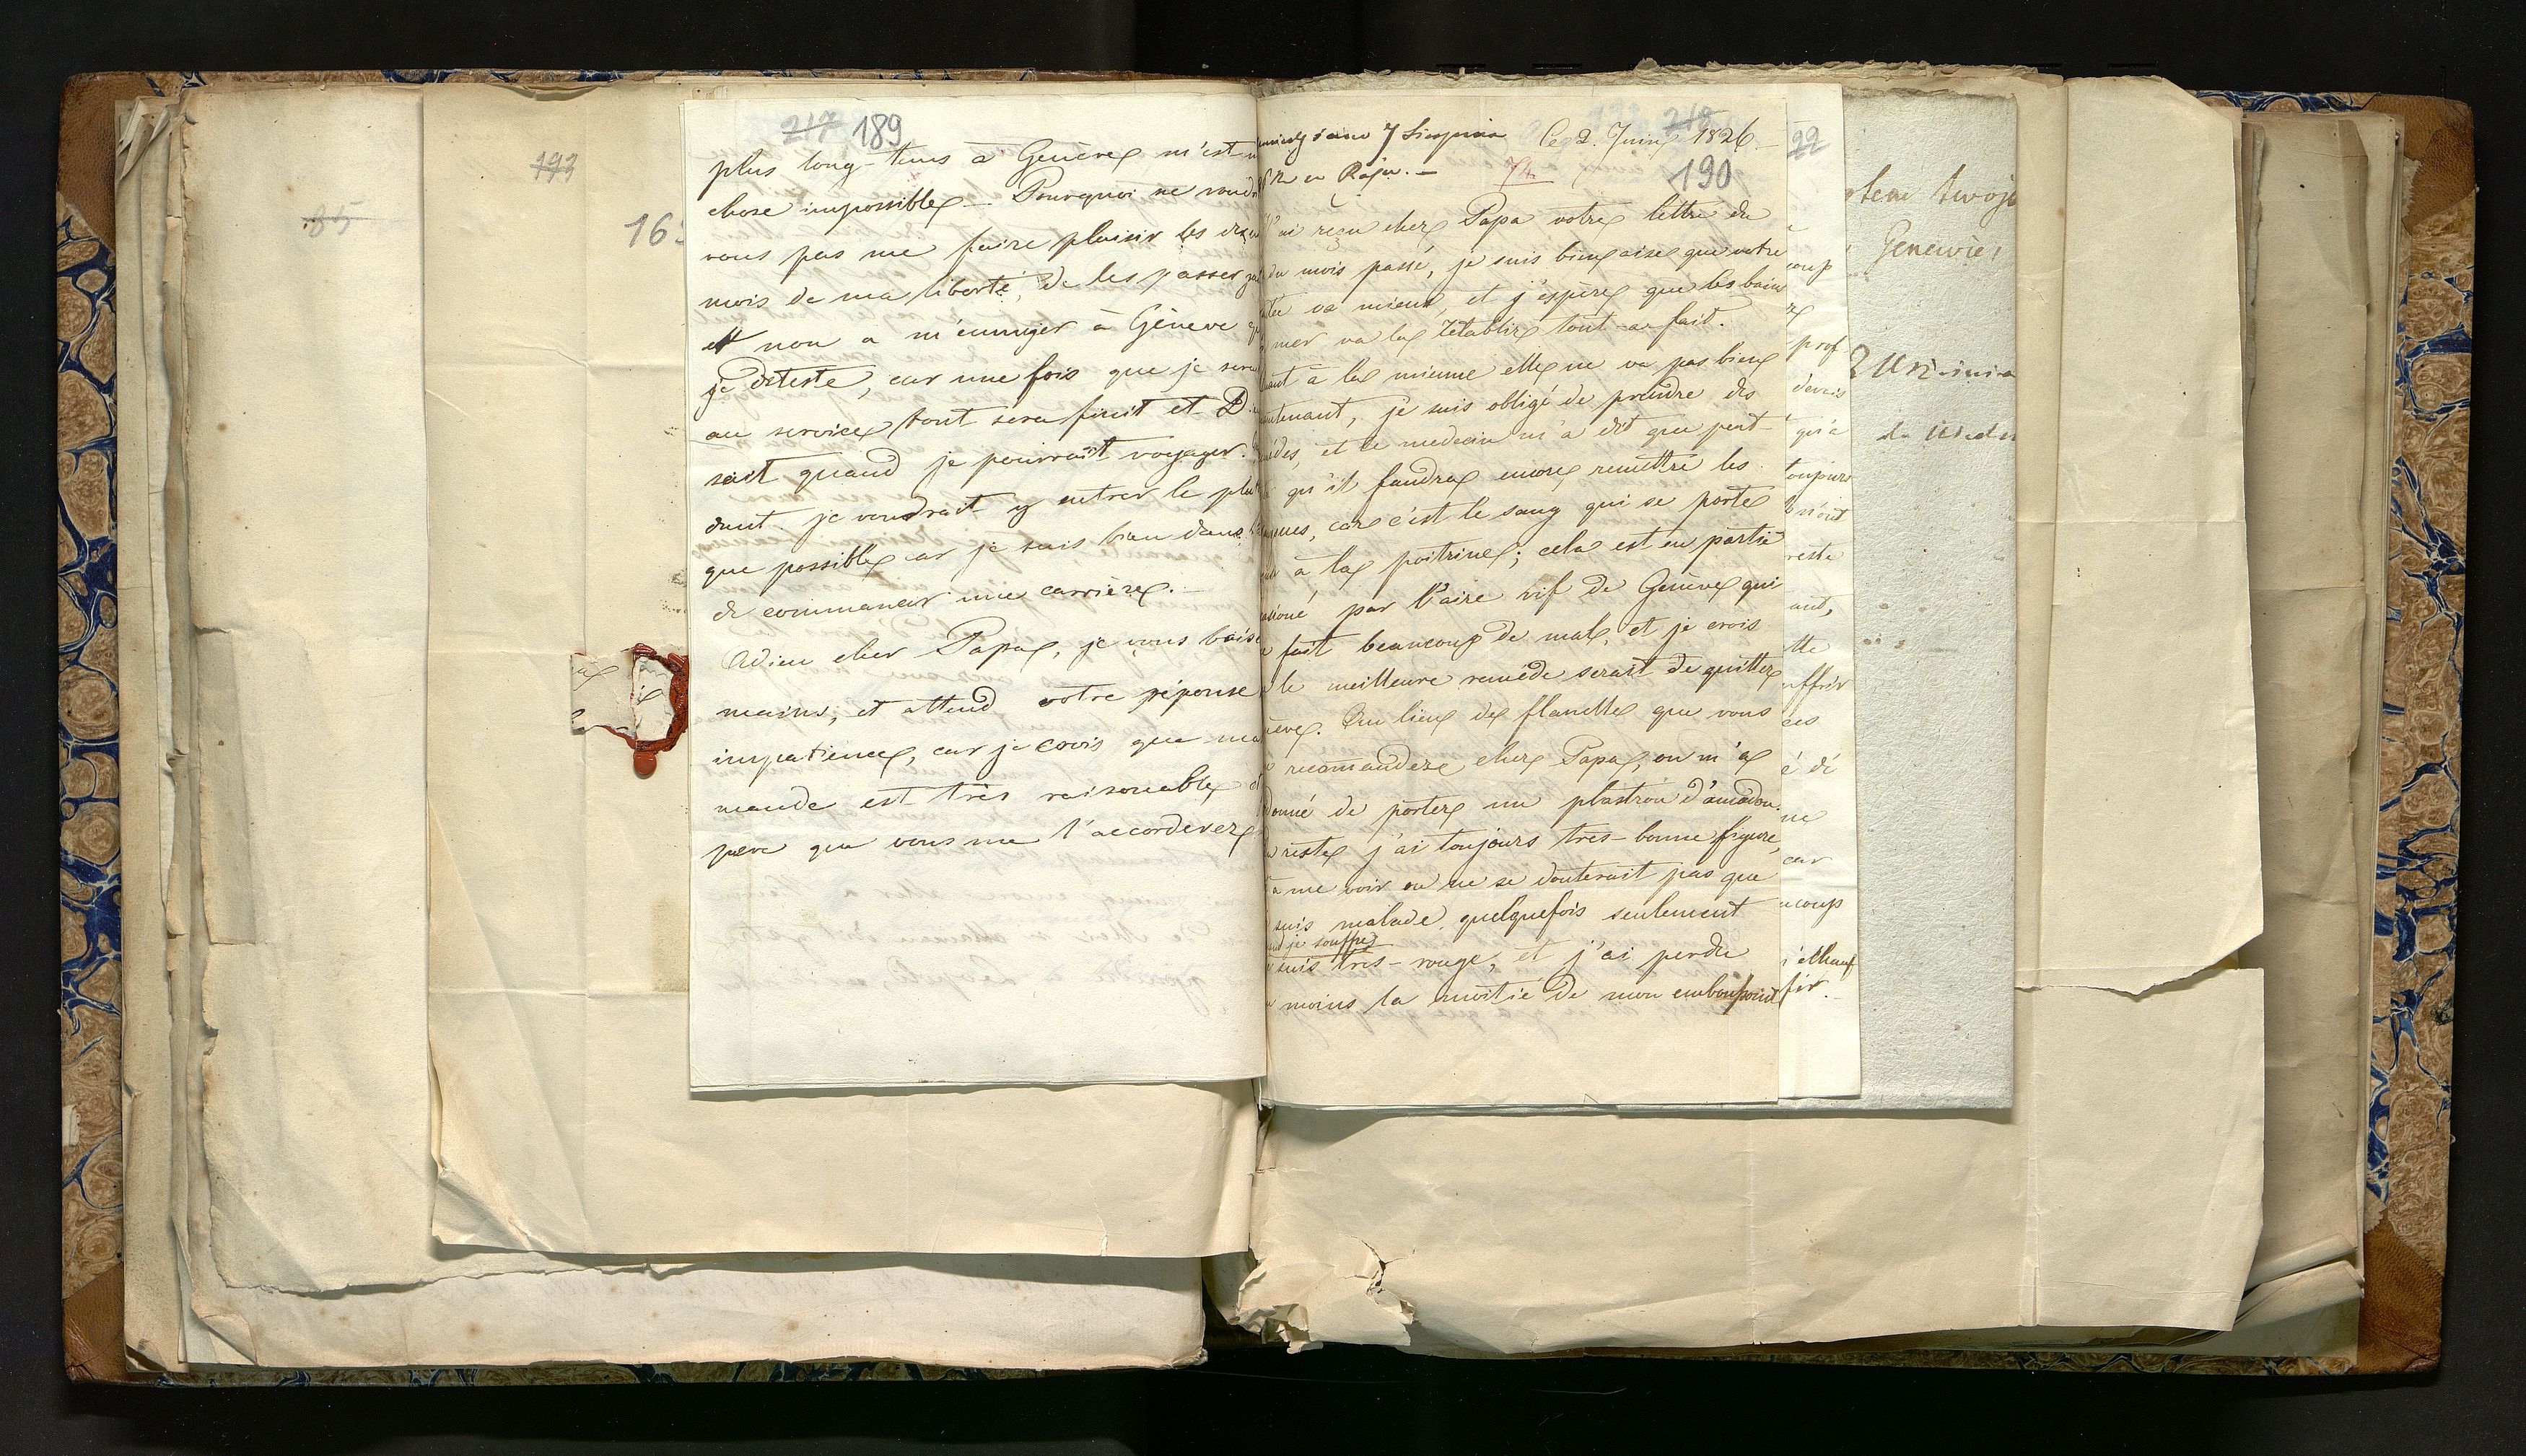 217 189
plus long-tems à Genève m'est
chose impossible. Pourquoi ne
vous pas me faire plaisir les
mois de ma liberté, de les passer
et non a m'ennuyer à Génève
je déteste, car une fois que je
au service tout sera finit et
sait quand je pourrait voyager.
dant je voudrait y entrer le
que possible car je suis dans
de commancer une carrière.
Adieu cher Papa, je vous baise
mains, et attend votre réponse
impatience, car je crois que ma
mande est très raisonable
père que vous me l'accorderez
193
85
163
218
190
7 Sierpnia Ce 2. Juin 1826.
74
J'ai reçu cher Papa votre lettre du
du mois passé, je suis bien aise que votre
va mieux, et j'espère que les bains
mer va la rétablir tout-a-fait.
à la mienne elle ne va pas bien
tenant, je suis obligé de prendre des
et le medecin m'a dit que peut-
qu'il faudra encore remettre les
car c'est le sang qui se porte
à la poitrine; cela est en partie
par l'aire vif de Genève qui
fait beaucoup de mal, et je crois
le meilleure remède serait de quitter
Au lieu de flanelle que vous
recomandere cher Papa, on m'a
donné de porter un plastron d'amadou.
reste j'ai toujours très-bonne figure,
a me voir on ne se douterait pas que
suis malade, quelquefois seulement
je souffre
suis très-rouge, et j'ai perdu
moins la moitié de mon embonpoint
22
coup
prof
devais
qu'à
toujours
n'ont
reste
ant,
tte
uffrir
ces
é de
ne
car
ucoup
fir.
twoje
Genewie